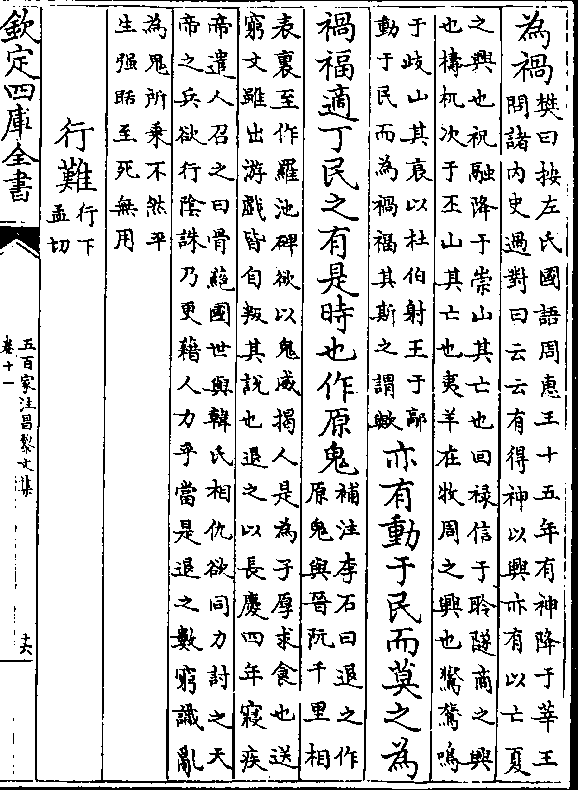 為禍樊曰按左氏國語周惠王十五年有神降于莘王
問諸内史過對曰云云有得神以興亦有以亡夏
之興也祝融降于崇山其亡也回禄信于聆隧商之興
也檮杌次于丕山其亡也夷羊在牧周之興也鸑鷟鳴
于歧山其衰以杜伯射王于鄗
動于民而為禍福其斯之謂歟亦有動于民而莫之為
禍福適丁民之有是時也作原鬼補注李石曰退之作
原鬼與晉阮千里相
表裏至作羅池碑欲以鬼威揭人是為子厚求食也送
窮文雖出游戲皆自叛其說也退之以長慶四年寢疾
帝遣人召之曰骨蒞國世與韓氏相仇欲同力討之天
帝之兵欲行陰誅乃更藉人力乎當是退之數窮識亂
為鬼所乘不然平
生强聒至死無用
行難行下
孟切
欽定四庫全書
五百家注昌黎文集
卷十一
十六